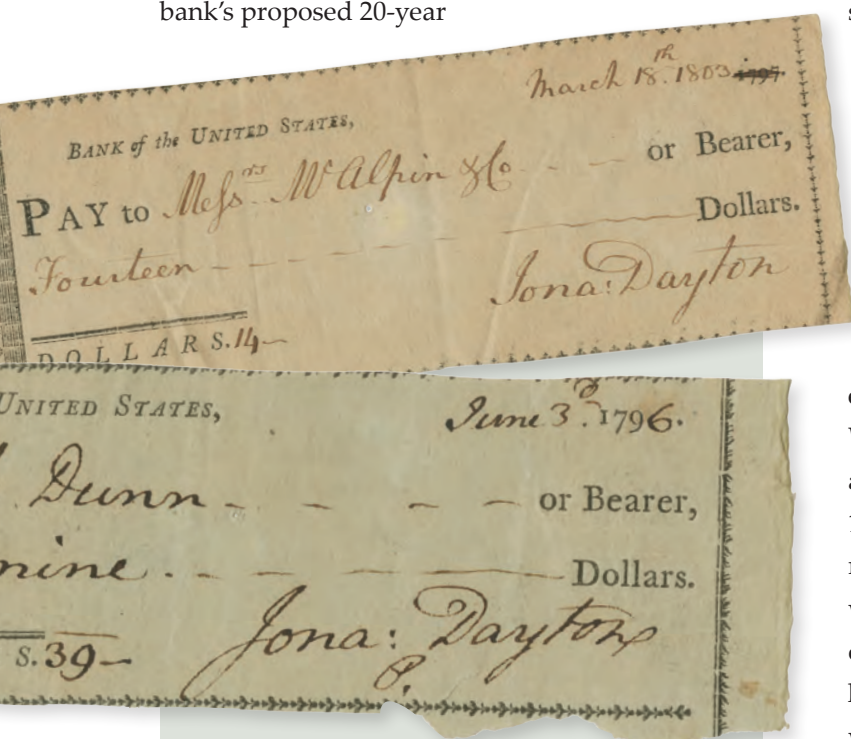 bank's proposed 20-year
March 18.th 1803 1797.
BANK of the UNITED STATES,
PAY to Messrs. McAlpin & Co. or Bearer,
Fourteen Dollars.
Jona: Dayton
DOLLARS. 14
UNITED STATES,
June 3d. 1796.
Dunn or Bearer,
nine Dollars.
S. 39
Jona: Dayton